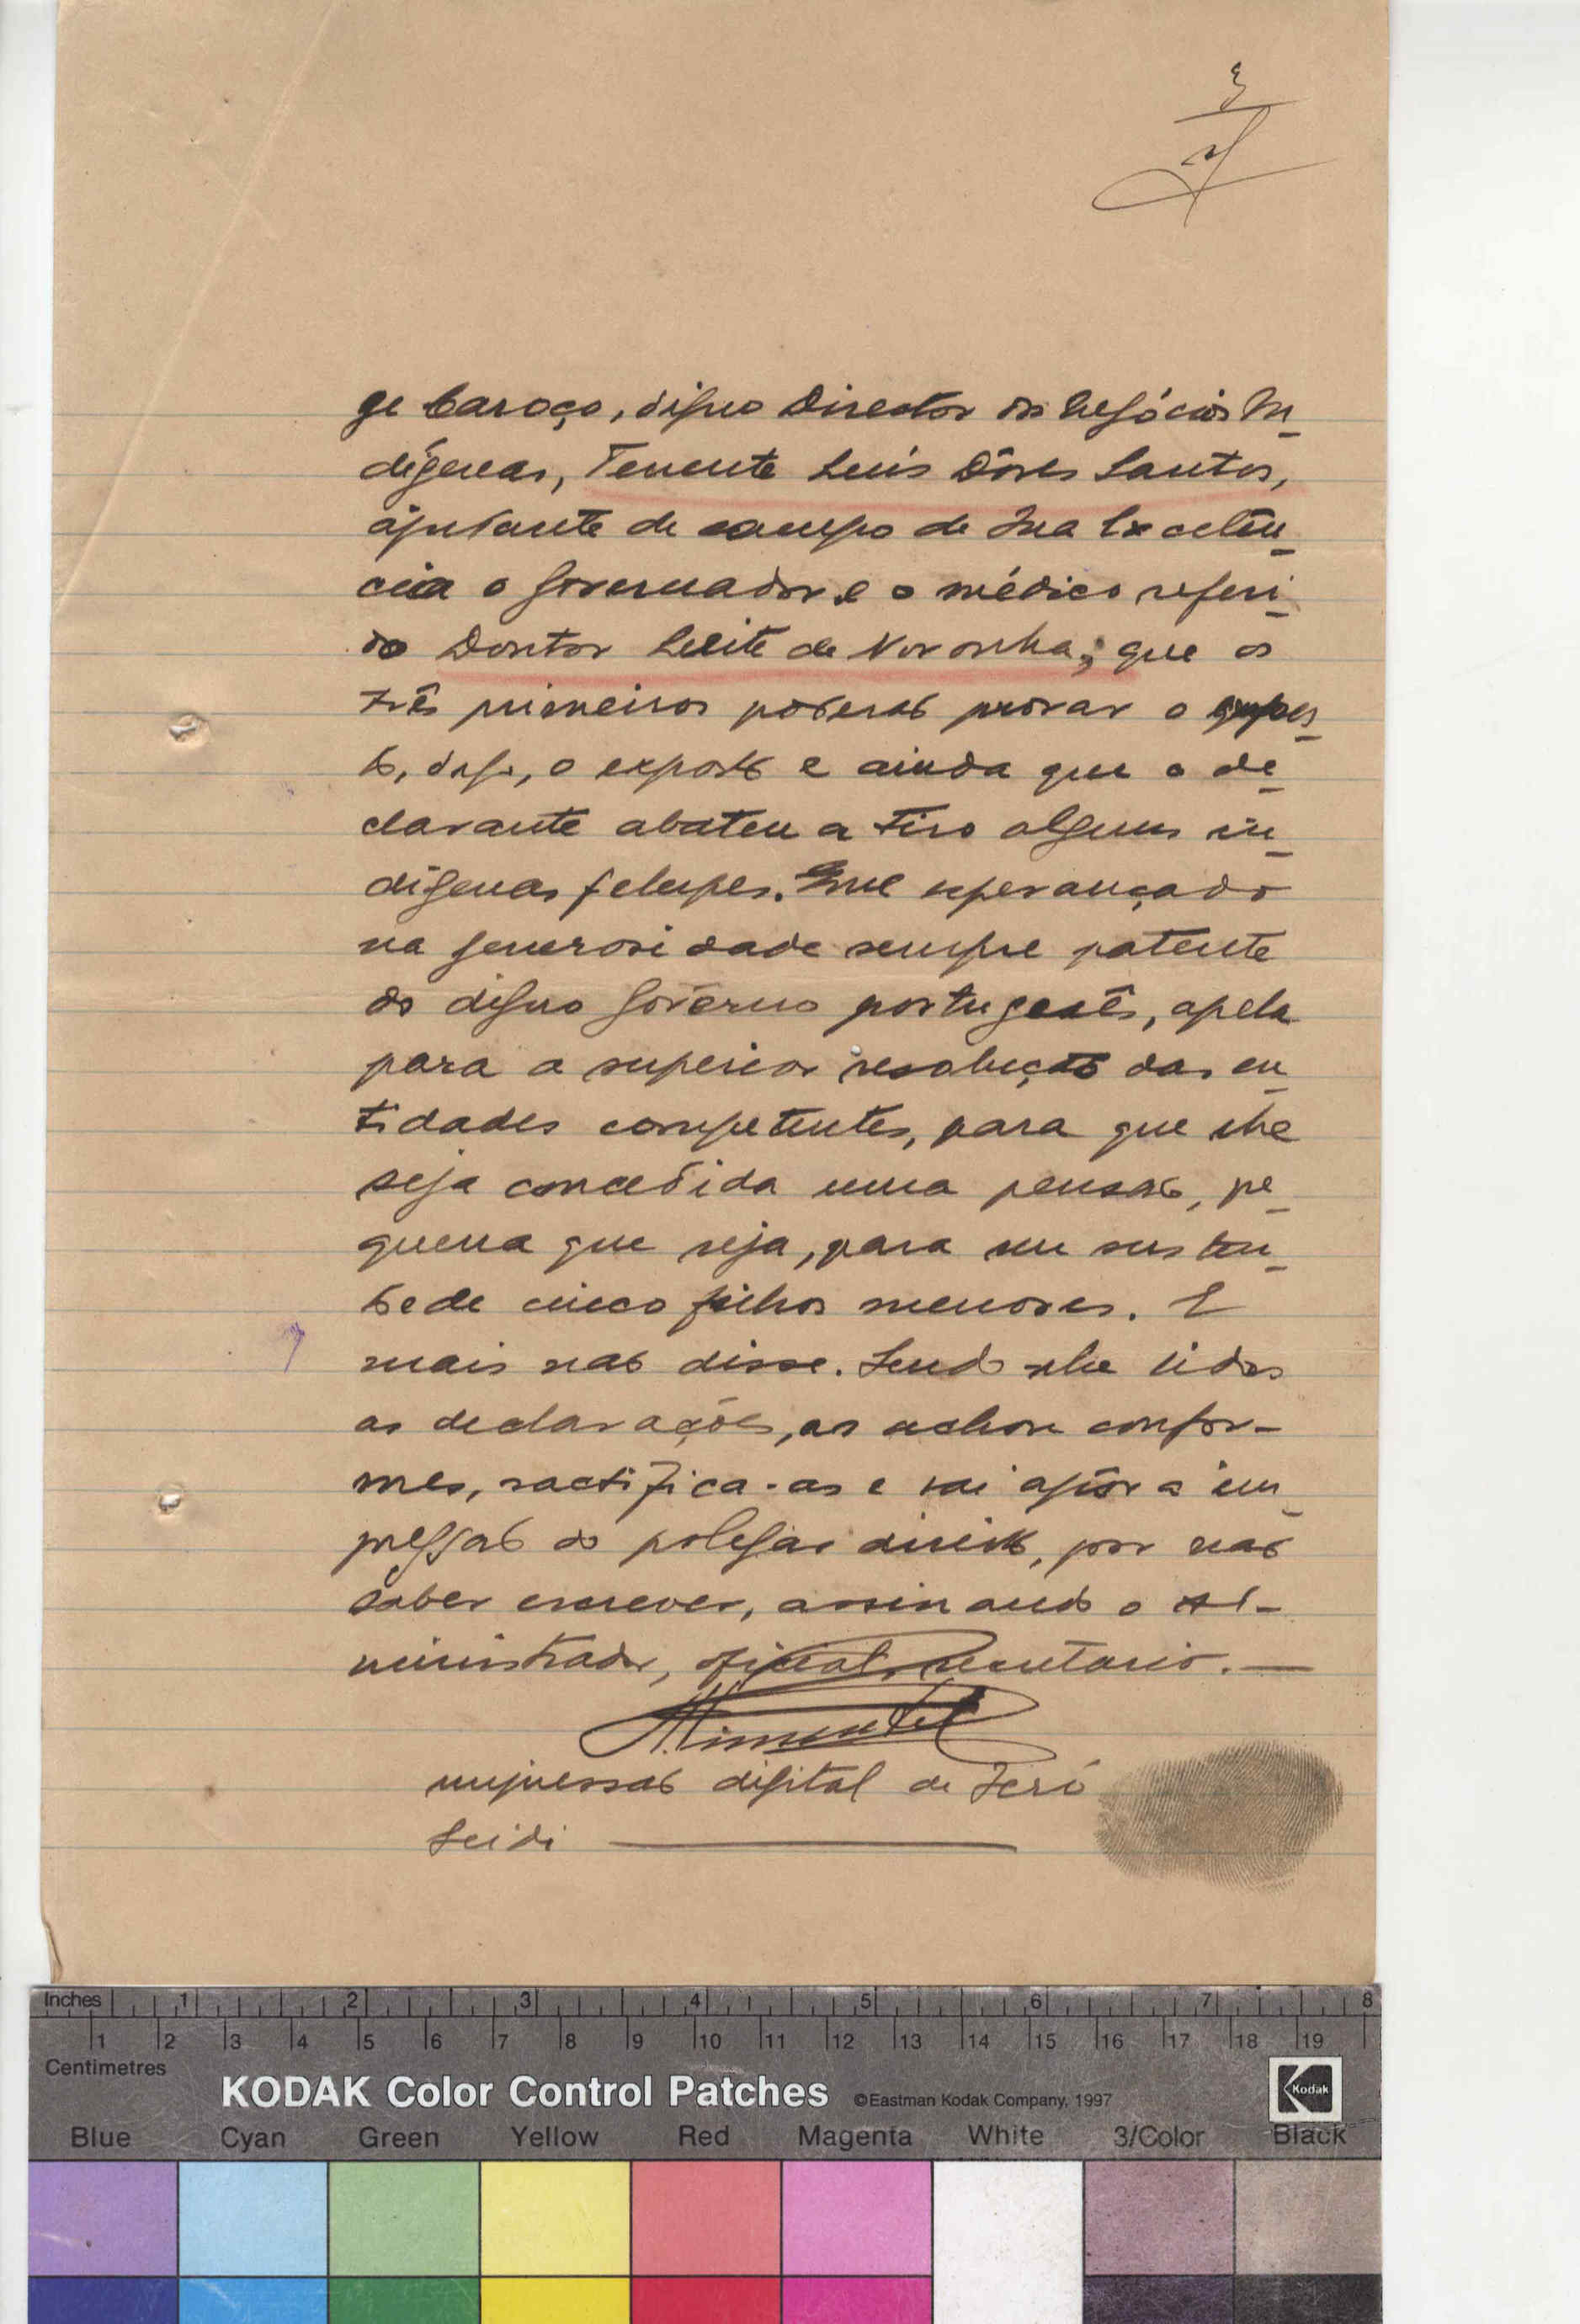 3
ge Caroço, digno Director dos Negócios In_
dígenas, Tenente Luis Dôres Santos,
ajudante de campo de Sua Excelên_
cia o Governador e o médico referi_
do Doutor Leite de Noronha; que os
três primeiros poderão provar o
to, digo, o exposto e ainda que o de_
clarante abateu a tiro alguns in_
digenas felupes. Que esperançado
na generosidade sempre patente
do digno Govêrno portuguès, apela
para a superior resolução das en_
tidades competentes, para que lhe
seja concedida uma pensão, pe_
quena que seja, para seu susten_
to e de cinco filhos menores. E
mais não disse. Sendo-lhe lidas
as declarações, as achou confor-
mes, ractifica-as e vai apôr a im_
pressão do polegar direito, por não
saber escrever, assinando o Ad-
ministrador, oficial, secretario. —
Pimentel
impressão digital de Jeró
Seidi
Inches 1 2 3 4 5 6 7 8
1 2 3 4 5 6 7 8 9 10 11 12 13 14 15 16 17 18 19
Centimetres
KODAK Color Control Patches ©Eastman Kodak Company, 1997 Kodak
Blue Cyan Green Yellow Red Magenta White 3/Color Black